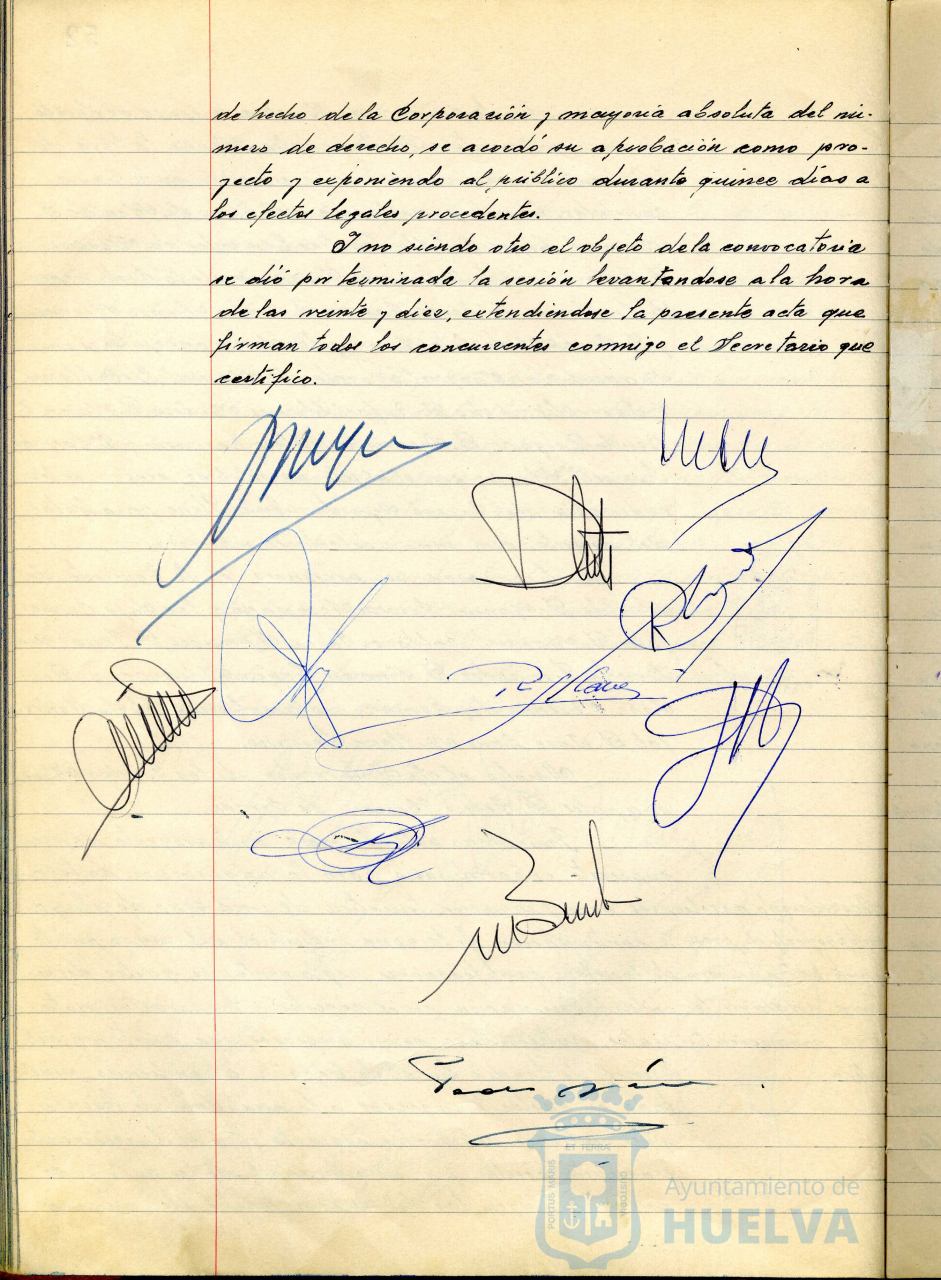 de hecho de la Corporación y mayoria absoluta del nú-
mero de derecho, se acordó su aprobación como pro-
yecto y exponiendo al público durante quince días a
los efectos legales procedentes.
Y no siendo otro el objeto de la convocatoria
se dió por terminada la sesión levantandose a la hora
de las veinte y diez, extendiendose la presente acta que
firman todos los concurrentes conmigo el Secretario que
certifico.
ET TERRÆ
PORTUS MARIS
CUSTODIA
Ayuntamiento de
HUELVA